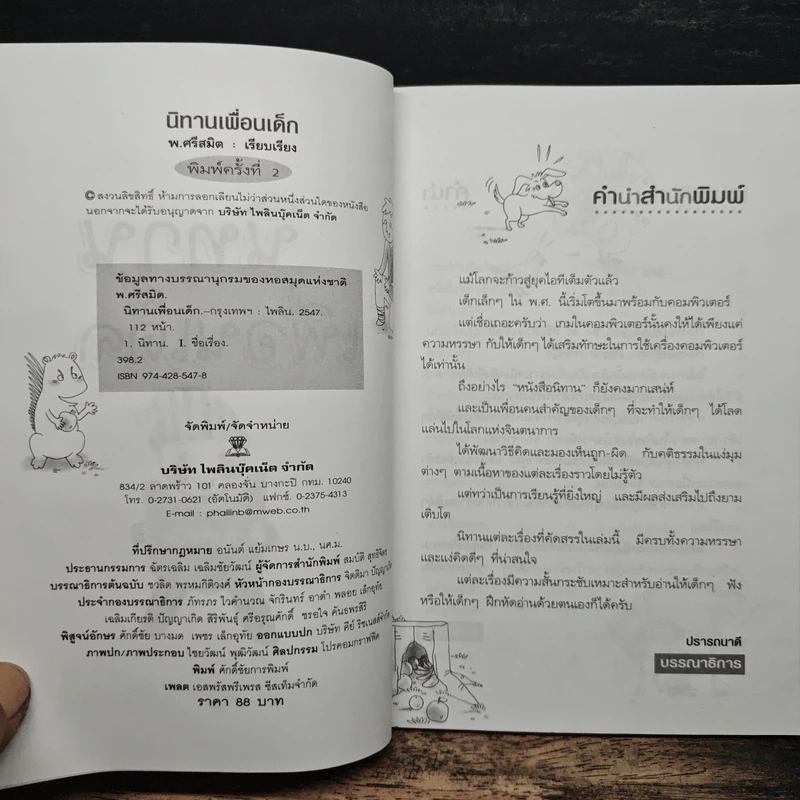 นิทานเพื่อนเด็ก
พ.ศรีสมิต : เรียบเรียง
พิมพ์ครั้งที่ 2
© สงวนลิขสิทธิ์ ห้ามการลอกเลียนไม่ว่าส่วนหนึ่งส่วนใดของหนังสือ
นอกจากจะได้รับอนุญาตจาก บริษัท ไพลินบุ๊คเน็ต จำกัด
ข้อมูลทางบรรณานุกรมของหอสมุดแห่งชาติ
พ.ศรีสมิต.
นิทานเพื่อนเด็ก.--กรุงเทพฯ : ไพลิน, 2547.
112 หน้า.
1. นิทาน. I. ชื่อเรื่อง.
398.2
ISBN 974-428-547-8
จัดพิมพ์/จัดจำหน่าย
บริษัท ไพลินบุ๊คเน็ต จำกัด
834/2 ลาดพร้าว 101 คลองจั่น บางกะปิ กทม. 10240
โทร. 0-2731-0621 (อัตโนมัติ) แฟกซ์. 0-2375-4313
E-mail : phailinb@mweb.co.th
ที่ปรึกษากฎหมาย อนันต์ แย้มเกษร น.บ., นศ.ม.
ประธานกรรมการ ฉัตรเฉลิม เฉลิมชัยวัฒน์ ผู้จัดการสำนักพิมพ์ สมบัติ สุทธิจิตร
บรรณาธิการต้นฉบับ ชวลิต พรหมกิติวงศ์ หัวหน้ากองบรรณาธิการ จิตติมา ปัญญาเกิด
ประจำกองบรรณาธิการ ภัทรภร ไวคำนวณ จักรินทร์ อาดำ พลอย เล็กอุทัย
เฉลิมเกียรติ ปัญญาเกิด สิริพันธุ์ ศรีอรุณศักดิ์ ชรอใจ คันธพรสิริ
พิสูจน์อักษร ศักดิ์ชัย บางมด เพชร เล็กอุทัย ออกแบบปก บริษัท คีย์ รีซเนสส์จำกัด
ภาพปก/ภาพประกอบ ไชยวัฒน์ พุฒิวัฒน์ ศิลปกรรม โปรคอมกราฟฟิค
พิมพ์ ศักดิ์ชัยการพิมพ์
เพลต เอสพรัสพรีเพรส ซีสเท็มจำกัด
ราคา 88 บาท
คำนำสำนักพิมพ์
แม้โลกจะก้าวสู่ยุคไอทีเต็มตัวแล้ว
เด็กเล็กๆ ใน พ.ศ. นี้เริ่มโตขึ้นมาพร้อมกับคอมพิวเตอร์
แต่เชื่อเถอะครับว่า เกมในคอมพิวเตอร์นั้นคงให้ได้เพียงแค่
ความหรรษา กับให้เด็กๆ ได้เสริมทักษะในการใช้เครื่องคอมพิวเตอร์
ได้เท่านั้น
ถึงอย่างไร "หนังสือนิทาน" ก็ยังคงมากเสน่ห์
และเป็นเพื่อนคนสำคัญของเด็กๆ ที่จะทำให้เด็กๆ ได้โลด
แล่นไปในโลกแห่งจินตนาการ
ได้พัฒนาวิธีคิดและมองเห็นถูก-ผิด กับคติธรรมในแง่มุม
ต่างๆ ตามเนื้อหาของแต่ละเรื่องราวโดยไม่รู้ตัว
แต่ทว่าเป็นการเรียนรู้ที่ยิ่งใหญ่ และมีผลส่งเสริมไปถึงยาม
เติบโต
นิทานแต่ละเรื่องที่คัดสรรในเล่มนี้ มีครบทั้งความหรรษา
และแง่คิดดีๆ ที่น่าสนใจ
แต่ละเรื่องมีความสั้นกระชับเหมาะสำหรับอ่านให้เด็กๆ ฟัง
หรือให้เด็กๆ ฝึกหัดอ่านด้วยตนเองก็ได้ครับ
ปรารถนาดี
บรรณาธิการ